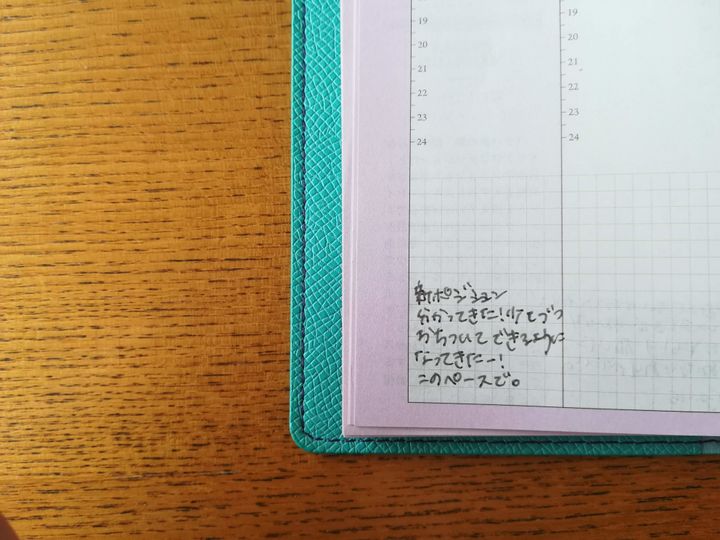 19
20
21
22
23
24
19
20
21
22
23
24
新ポジション
分かってきた!少しづつ
おちついてできるように
なってきたー!
このペースで。